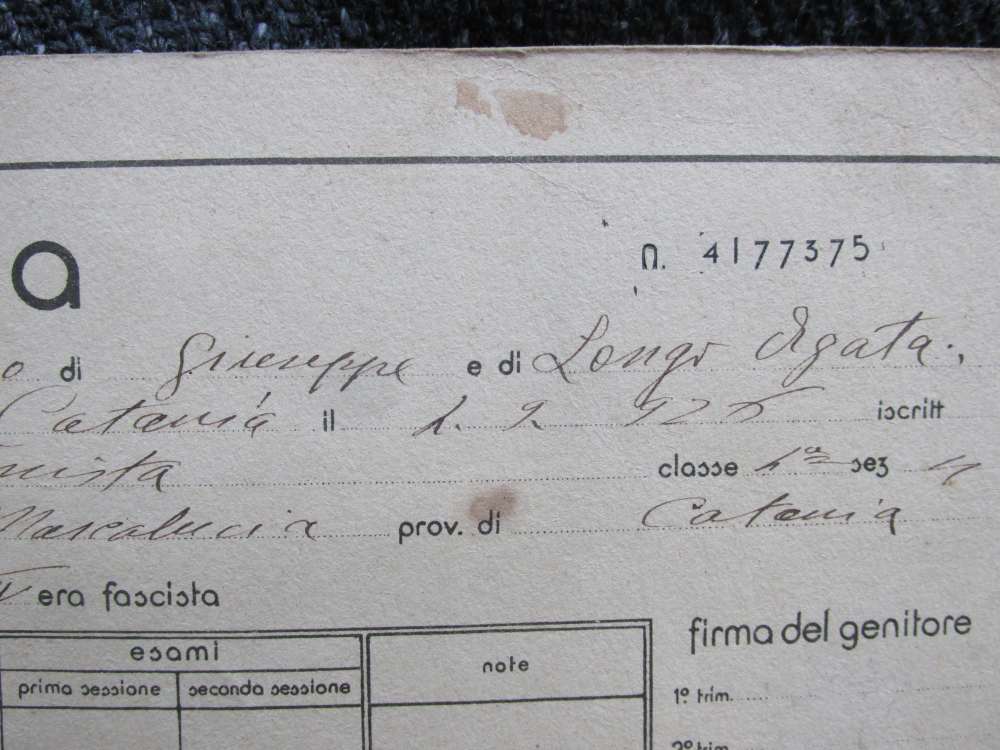 a
N. 4177375
o di Giuseppe e di Longo Agata.
Catania il 2. 9. 925 iscritt
mista classe 1ª sez
Mascalucia prov. di Catania
era fascista
esami note firma del genitore
prima sessione seconda sessione 1º trim.
2º trim.